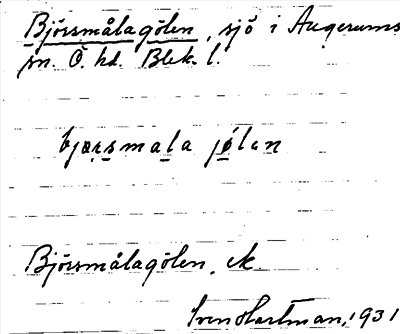 Björsmålagölen, sjö i Augerums
sn. Ö. hd. Blek. l.
bjørsmala jölan
Björsmålagölen, ek.
Sven Hartman, 1931